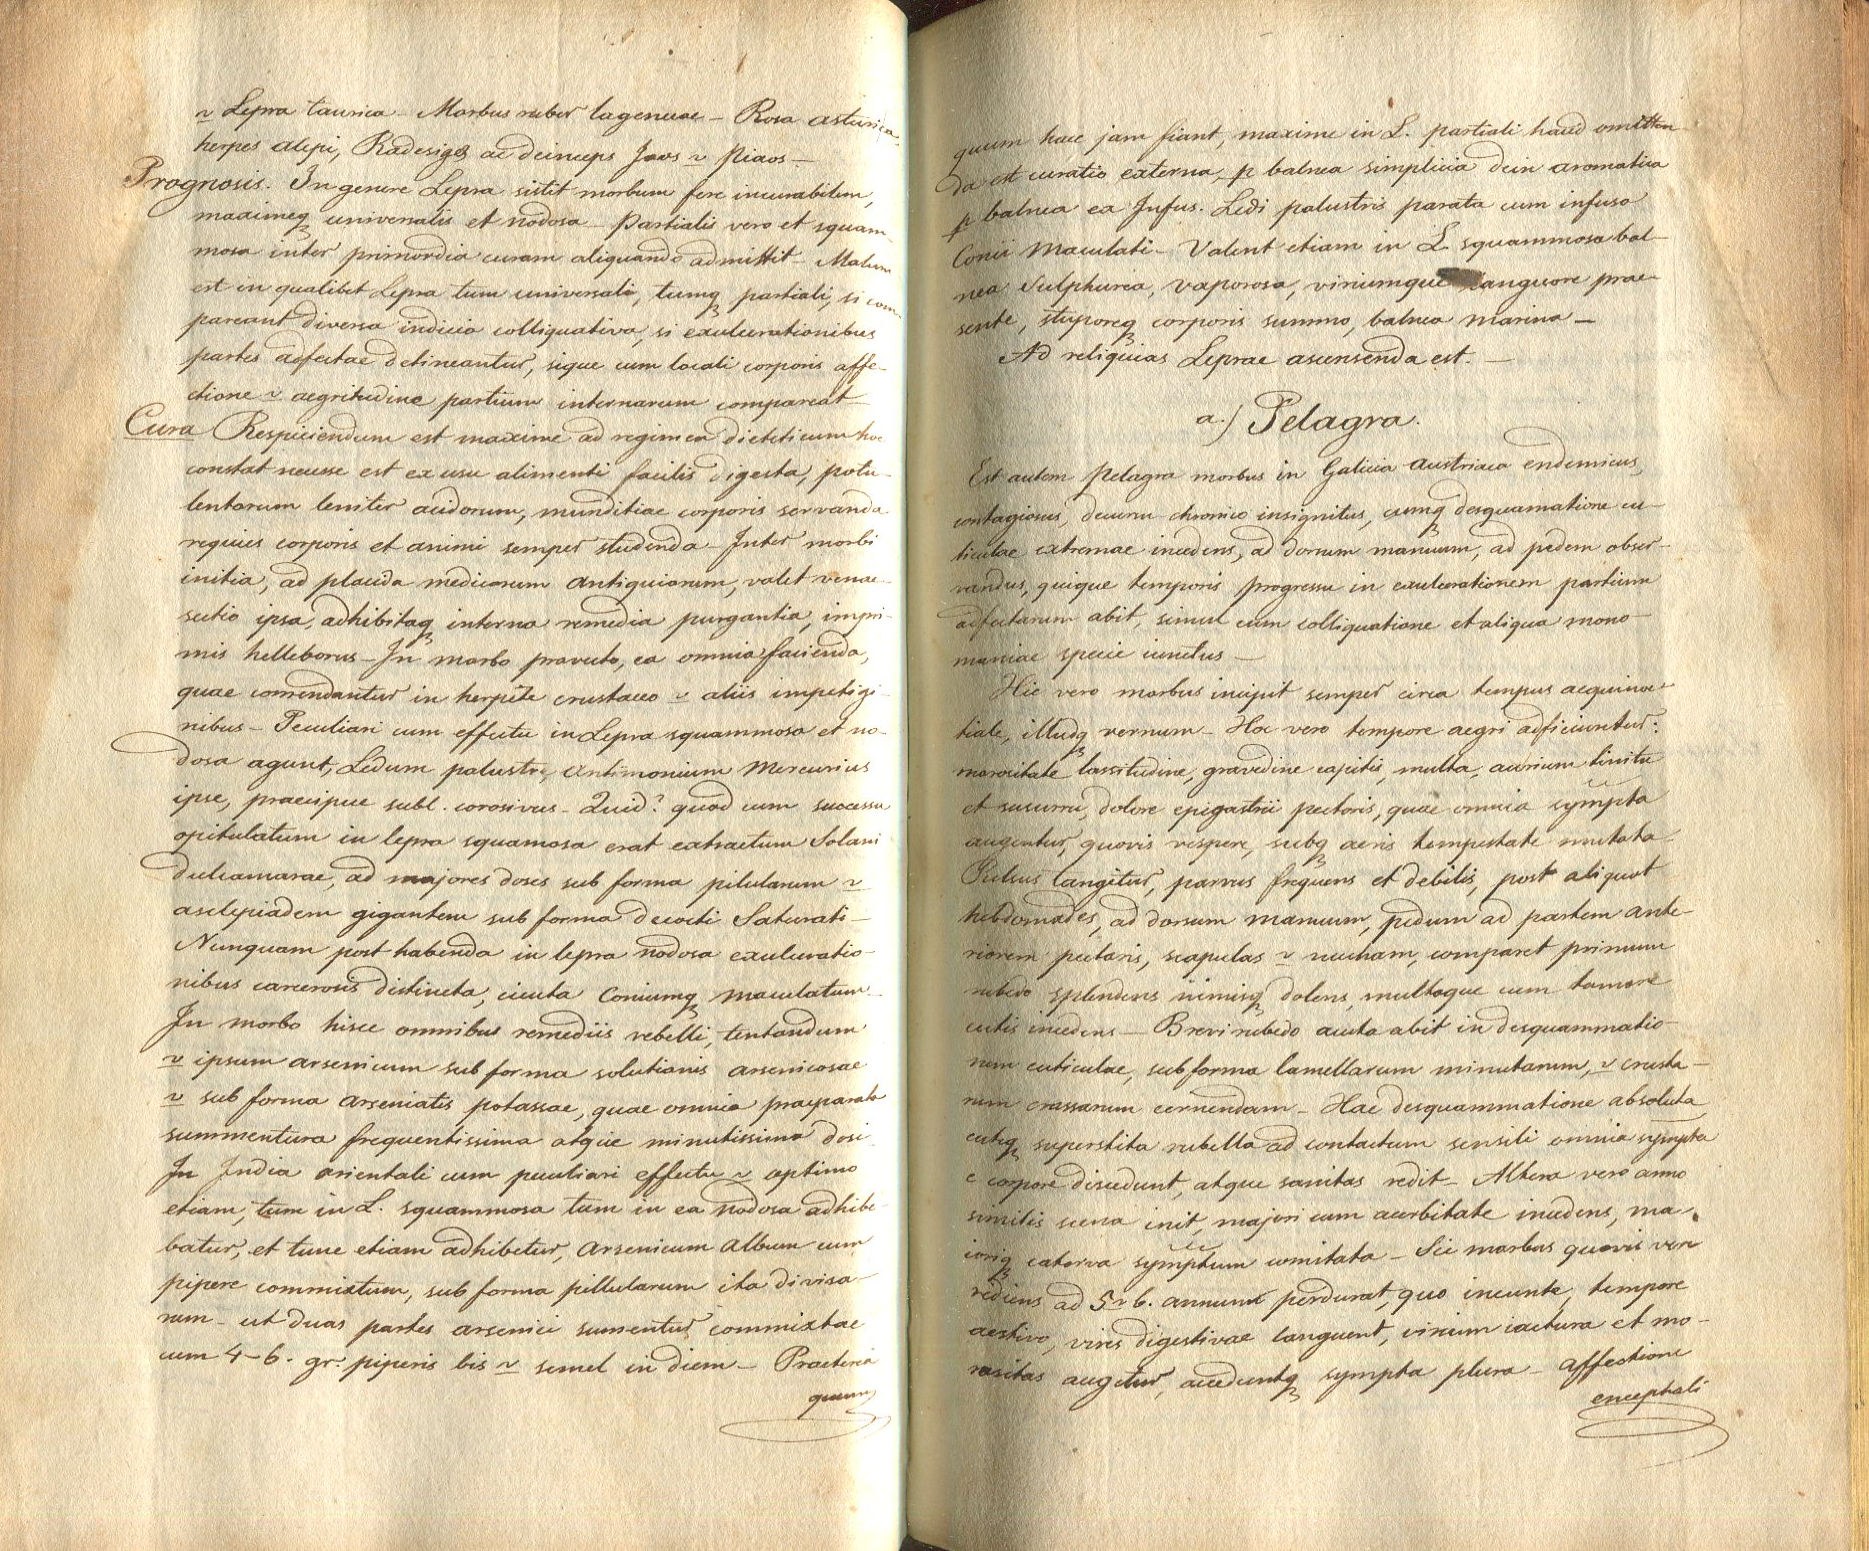 v Lepra taurica – Morbus ruber Cayennae – Rosa asturica
herpes alepi, Radesige ac deinceps Jaws v Pians –
Prognosis. In genere Lepra sistit morbum fere incurabilem,
maximeq universalis et nodosa – Partialis vero et squam-
mosa inter primordia curam aliquando admittit – Malum
est in qualibet Lepra tum universali, tumq partiali, si com
pareant diversa indicia colliquativa, si exulcerationibus
partes adfectae detineantur, sique cum locali corporis affe-
ctione v aegritudine partium internarum compareat
Cura Respiciendum est maxime ad regimen dieteticum hoc
constat necesse est ex usu alimenti facilis digestu, potu-
lentorum leniter acidorum, munditiae corporis servanda
requies corporis et animi semper studenda – Inter morbi
initia, ad placita medicorum antiquiorum, valet venae-
sectio ipsa, adhibitaq interna remedia purgantia, impri-
mis helleborus – In morbo provecto, ea omnia facienda,
quae comendantur in herpete crustaceo v aliis impetigi-
nibus – Peculiari cum effectu in Lepra squammosa et no-
dosa agunt, Ledum palustre, antimonium Mercurius
ipse, praecipue subl. corosivus – Quid? quod cum successu
opitulatum in lepra squamosa erat extractum Solani
dulcamarae, ad majores doses sub forma pilularum v
asclepiadem giganteam sub forma decocti Saturati –
Nunquam post habenda in lepra nodosa exulceratio-
nibus carcerosis distincta, cicuta Coniumq maculatum
In morbo hisce omnibus remediis rebelli, tentandum
v ipsum arsenicum sub forma solutionis arsenicosae
v sub forma arseniatis potassae, quae omnia praeparata
summentura frequentissima atque minutissima dosi
In India orientali cum peculiari effectu v optimo
etiam, tum in L. squammosa tum in ea nodosa adhibe-
batur, et tunc etiam adhibetur, arsenicum album cum
pipere commixtum, sub forma pillularum ita divisa-
rum – ut duas partes arsenici sumentur commixtae
cum 4–6. gr. piperis bis v semel in diem – Praeterea
quum
quum haec jam fiant, maxime in L. partiali haud omitten
da est curatio externa, p balnea simplicia dein aromatica
p balnea ex Infus. Ledi palustris parata cum infuso
Conii Maculati – Valent etiam in L. squammosa bal-
nea Sulphurea, vaporosa, viriumque languore prae-
sente, stuporeq corporis summo, balnea marina –
Ad reliquias Leprae ascensenda est. –
a.) Pelagra.
Est autem pelagra morbus in Galicia austriaca endemicus,
contagiosus, decursu chronico insignitus, cumq desquamatione cu-
ticulae extremae incedens, ad dorsum manuum, ad pedem obser-
vandus, quique temporis progressu in exulcerationem partium
adfectarum abit, simul cum colliquatione et aliqua mono-
maniae specie iunctus –
Hic vero morbus incipit semper circa tempus aequinoc-
tiale, illudq vernum – Hoc vero tempore aegri adficiuntur:
morositate lassitudine, gravedine capitis, multa, aurium tinitu
et susurru, dolore epigastrii pectoris, quae omnia sympta
augentur, quovis vespere, subq aeris tempestate mutata.
Pulsus tangitur, parvus frequens et debilis, post aliquot
hebdomades, ad dorsum manuum, pedum ad partem ante-
riorem pectoris, scapulas v nucham, comparet primum
rubedo splendens nimisq dolens, multoque cum tumore
cutis incedens – Brevi rubedo acuta abit in desquammatio-
nem cuticulae, sub forma lamellarum minutarum, v crusta-
rum crassarum cernendam – Hac desquammatione absoluta
cutiq superstita rubella ad contactum sensili omnia sympta
e corpore discedunt, atque sanitas redit – Altera vero anno
similis scena init, majori cum acerbitate incedens, ma-
joriq caterva symptum comitata – Sic morbus quovis vere
rediens ad 5 v 6. annum perdurat, quo ineunte, tempore
aestivo, vires digestivae languent, virium iactura et mo-
rositas augetur, acceduntq sympta plura – affectione
encephali